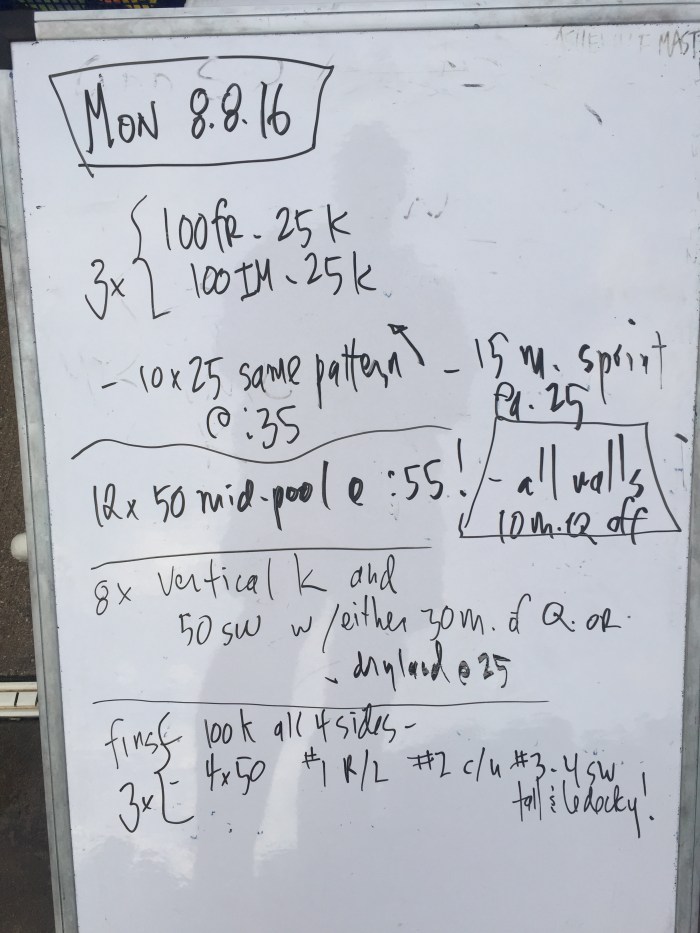 MAST
MON 8.8.16
100 fR - 25 K
3x 100 IM - 25 K
- 10 x 25 same pattern - 15 m. sprint
@ :35 ea. 25
12 x 50 mid-pool @ :55! - all walls
10 m. Q off
8x vertical K and
50 sw w/either 30 m. of Q. OR.
dryland @ 25
fins 100 K all 4 sides -
3x 4 x 50 #1 R/L #2 c/u #3-4 sw
tall &